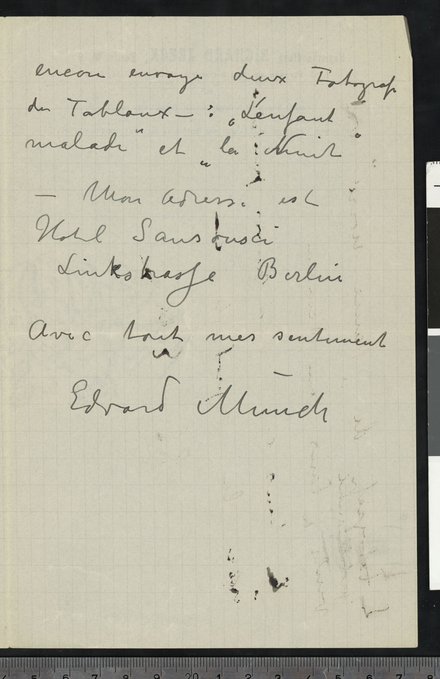 encore envoye deux Fotograf
des Tableaux — : „L'enfant
malade" et „la Nuit"
— Mon adress. est
Hotel Sanssouci
Linkstrasse Berlin
Avec tout mes sentiment
Edvard Munch